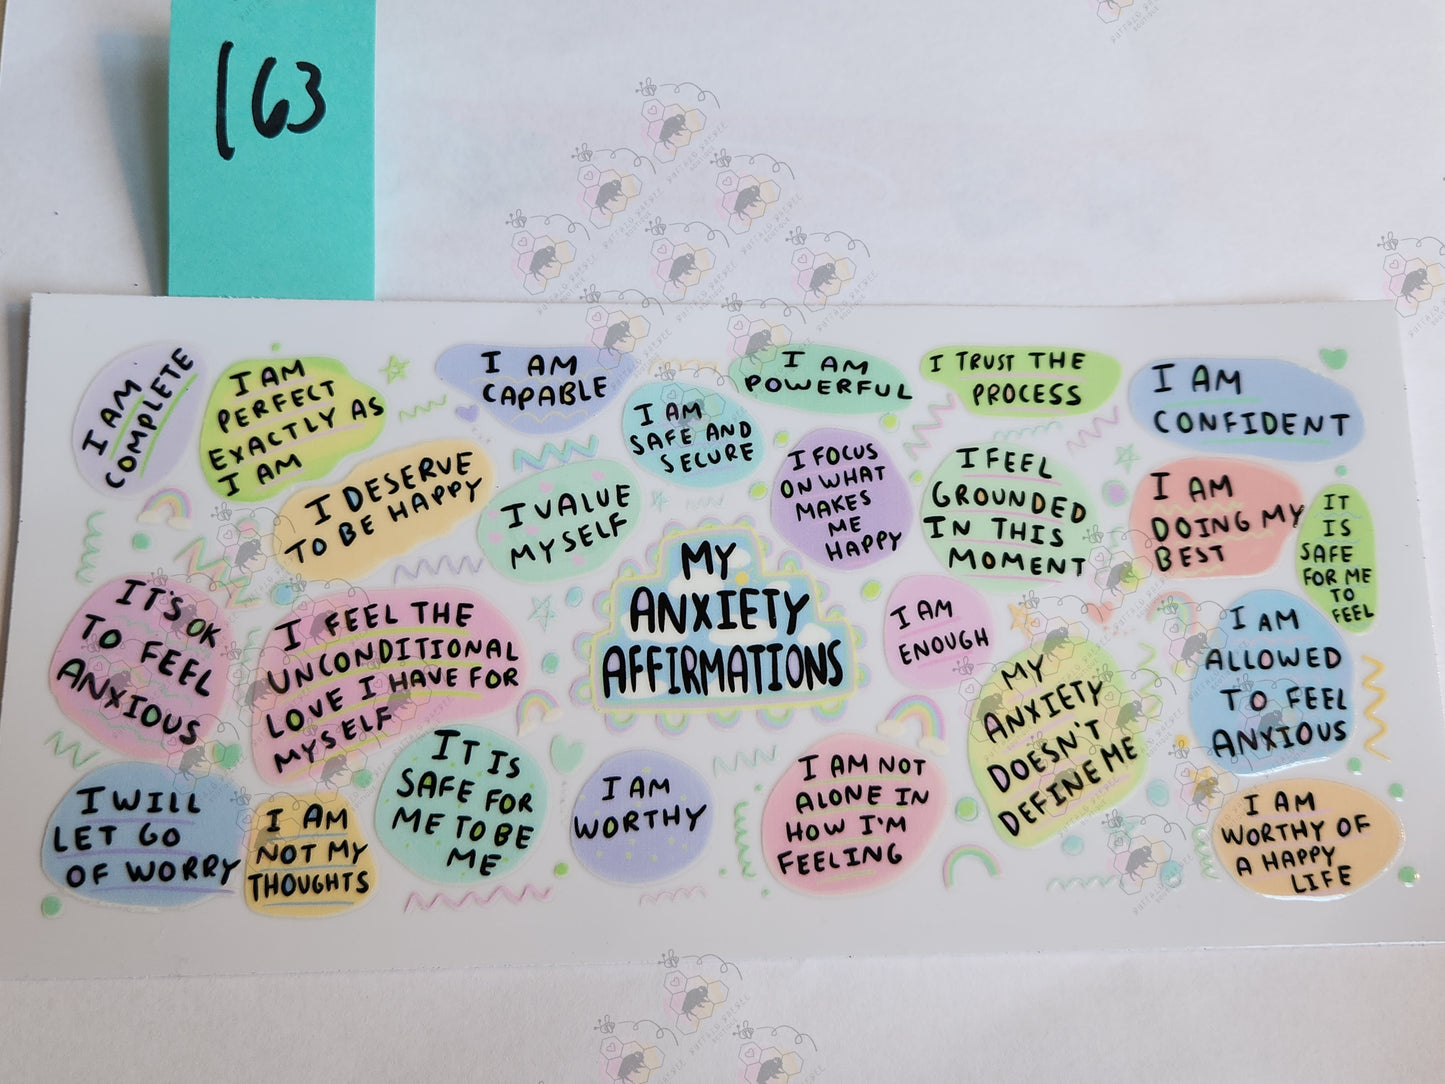 163
I AM
COMPLETE
I AM
PERFECT
EXACTLY AS
I AM
I AM
CAPABLE
I AM
SAFE AND
SECURE
I AM
POWERFUL
I TRUST THE
PROCESS
I AM
CONFIDENT
I DESERVE
TO BE HAPPY
I VALUE
MYSELF
I FOCUS
ON WHAT
MAKES
ME
HAPPY
I FEEL
GROUNDED
IN THIS
MOMENT
I AM
DOING MY
BEST
IT
IS
SAFE
FOR ME
TO
FEEL
IT'S OK
TO FEEL
ANXIOUS
I FEEL THE
UNCONDITIONAL
LOVE I HAVE FOR
MYSELF
MY
ANXIETY
AFFIRMATIONS
I AM
ENOUGH
MY
ANXIETY
DOESN'T
DEFINE ME
I AM
ALLOWED
TO FEEL
ANXIOUS
I WILL
LET GO
OF WORRY
I AM
NOT MY
THOUGHTS
IT IS
SAFE FOR
ME TO BE
ME
I AM
WORTHY
I AM NOT
ALONE IN
HOW I'M
FEELING
I AM
WORTHY OF
A HAPPY
LIFE